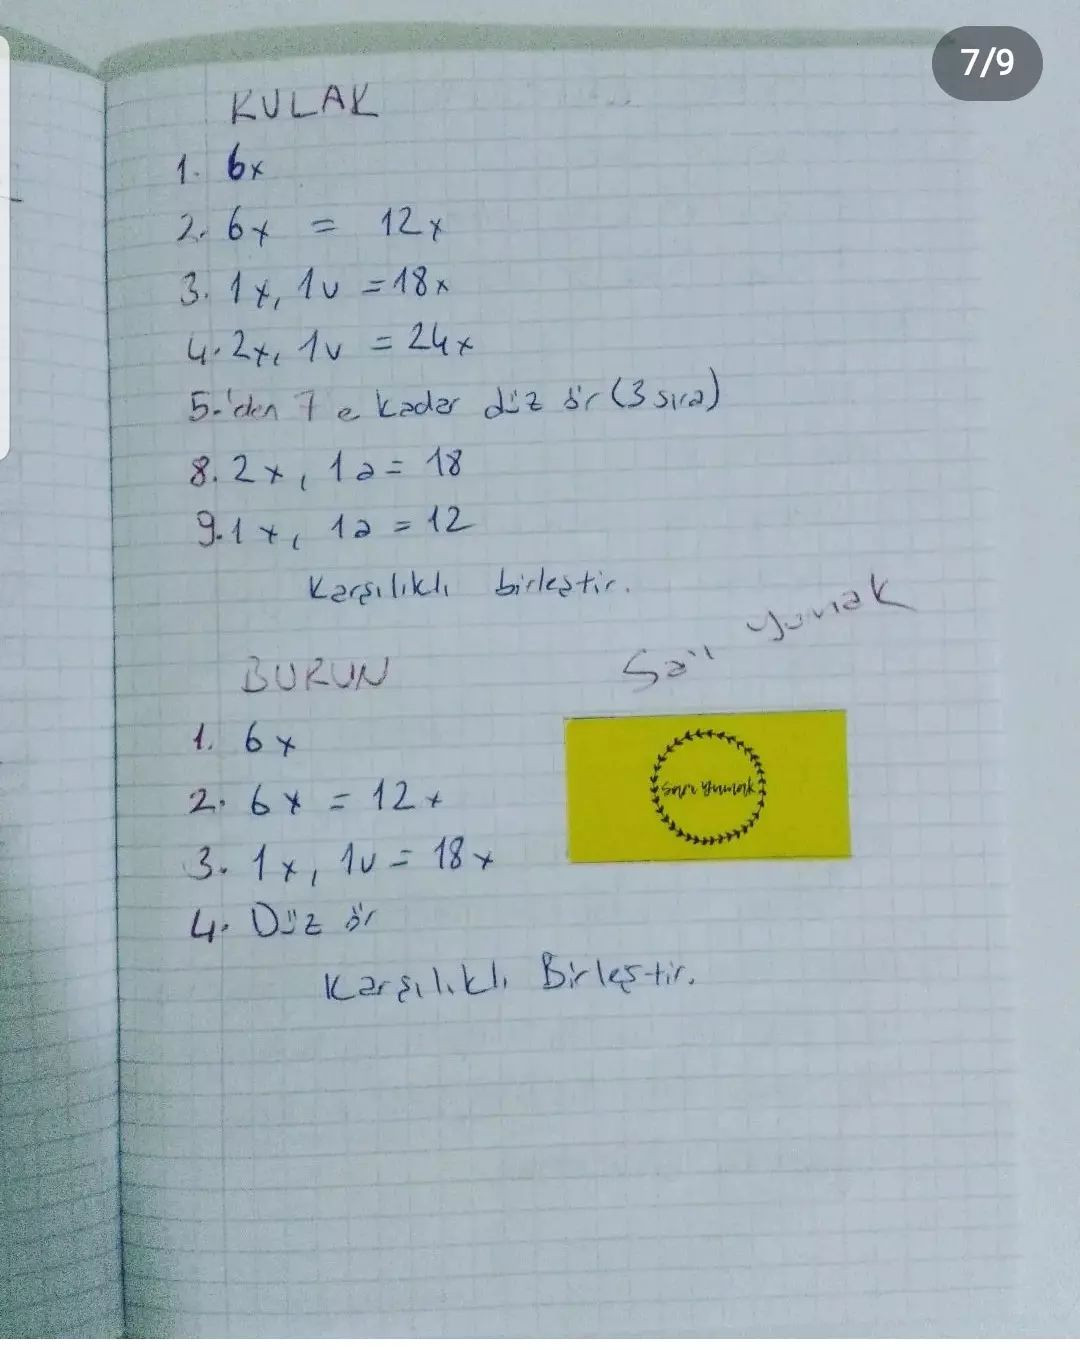 7/9
KULAK
1. 6x
2. 6x = 12x
3. 1x, 1v = 18x
4. 2x, 1v = 24x
5.'den 7 e kadar düz ör (3 sıra)
8. 2x, 1a = 18
9. 1x, 1a = 12
Karşılıklı birleştir.
Sarı yumak
BURUN
1. 6x
Sarı Yumak
2. 6x = 12x
3. 1x, 1v = 18x
4. Düz ör
Karşılıklı Birleştir.